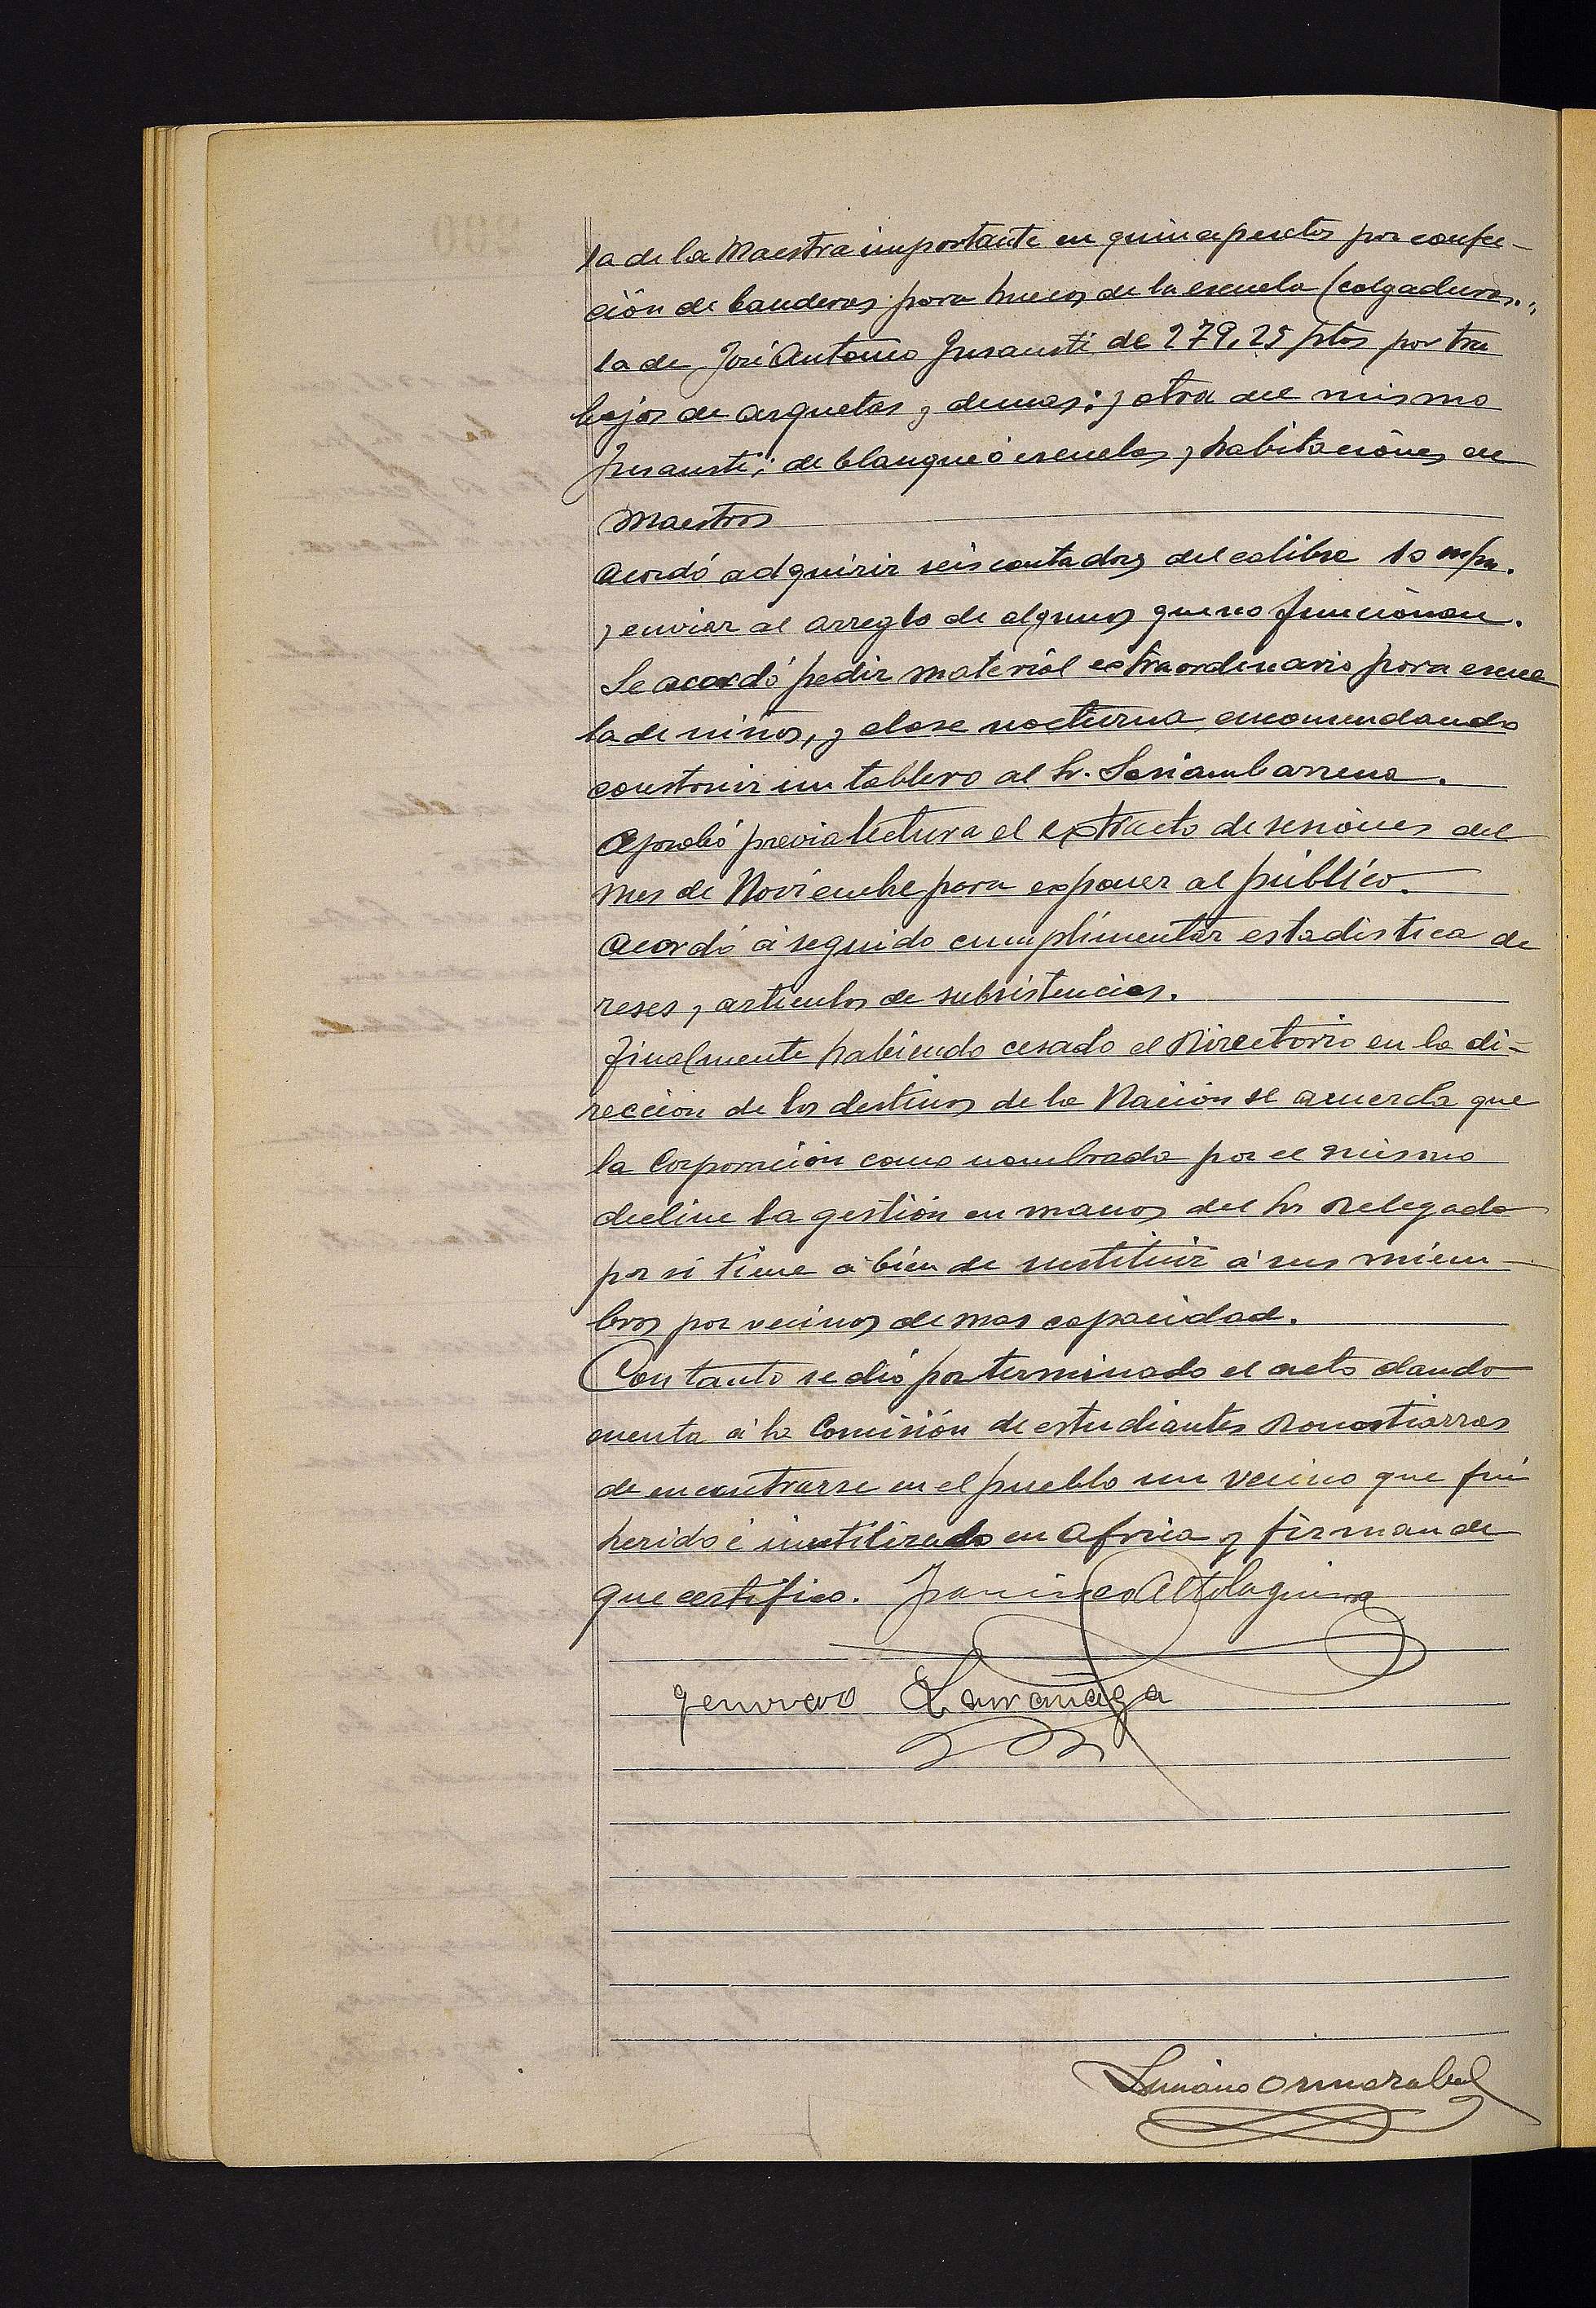 la de la Maestra importante en quince pesetas por confec-
ción de banderas para huecos de la escuela (colgaduras.,
la de José Antonio Insausti de 279,25 ptas por tra
bajos de arquetas y demas; y otra del mismo
Insausti; de blanqueó escuelas y habitaciones de
Maestros
Acordó adquirir seis contadores del calibre 10 m/m.
y enviar al arreglo de algunos que no funcionan.
Se acordó pedir material extraordinario para escue
la de niños, y clase nocturna encomendando
construir un tablero al Sr. Soriambarrena.
Aprobó previa lectura el extracto de sesiones del
mes de Noviembre para exponer al público.
Acordó á seguido cumplimentar estadistica de
reses y articulos de subsistencias.
Finalmente habiendo cesado el Directorio en la di-
reccion de los destinos de la Nación se acuerda que
la Corporación como nombrada por el mismo
decline la gestión en manos del Sr Delegado
por si tiene á bien de sustituir á sus miem-
bros por vecinos de mas capacidad.
Con tanto se dió por terminado el acto dando
cuenta á la Comisión de estudiantes Donostiarras
de encontrarse en el pueblo un vecino que fué
herido é inutilizado en Africa y firman de
que certifico. Francisco Altolaguirre
Genovevo Larrañaga
Luciano Ormazabal